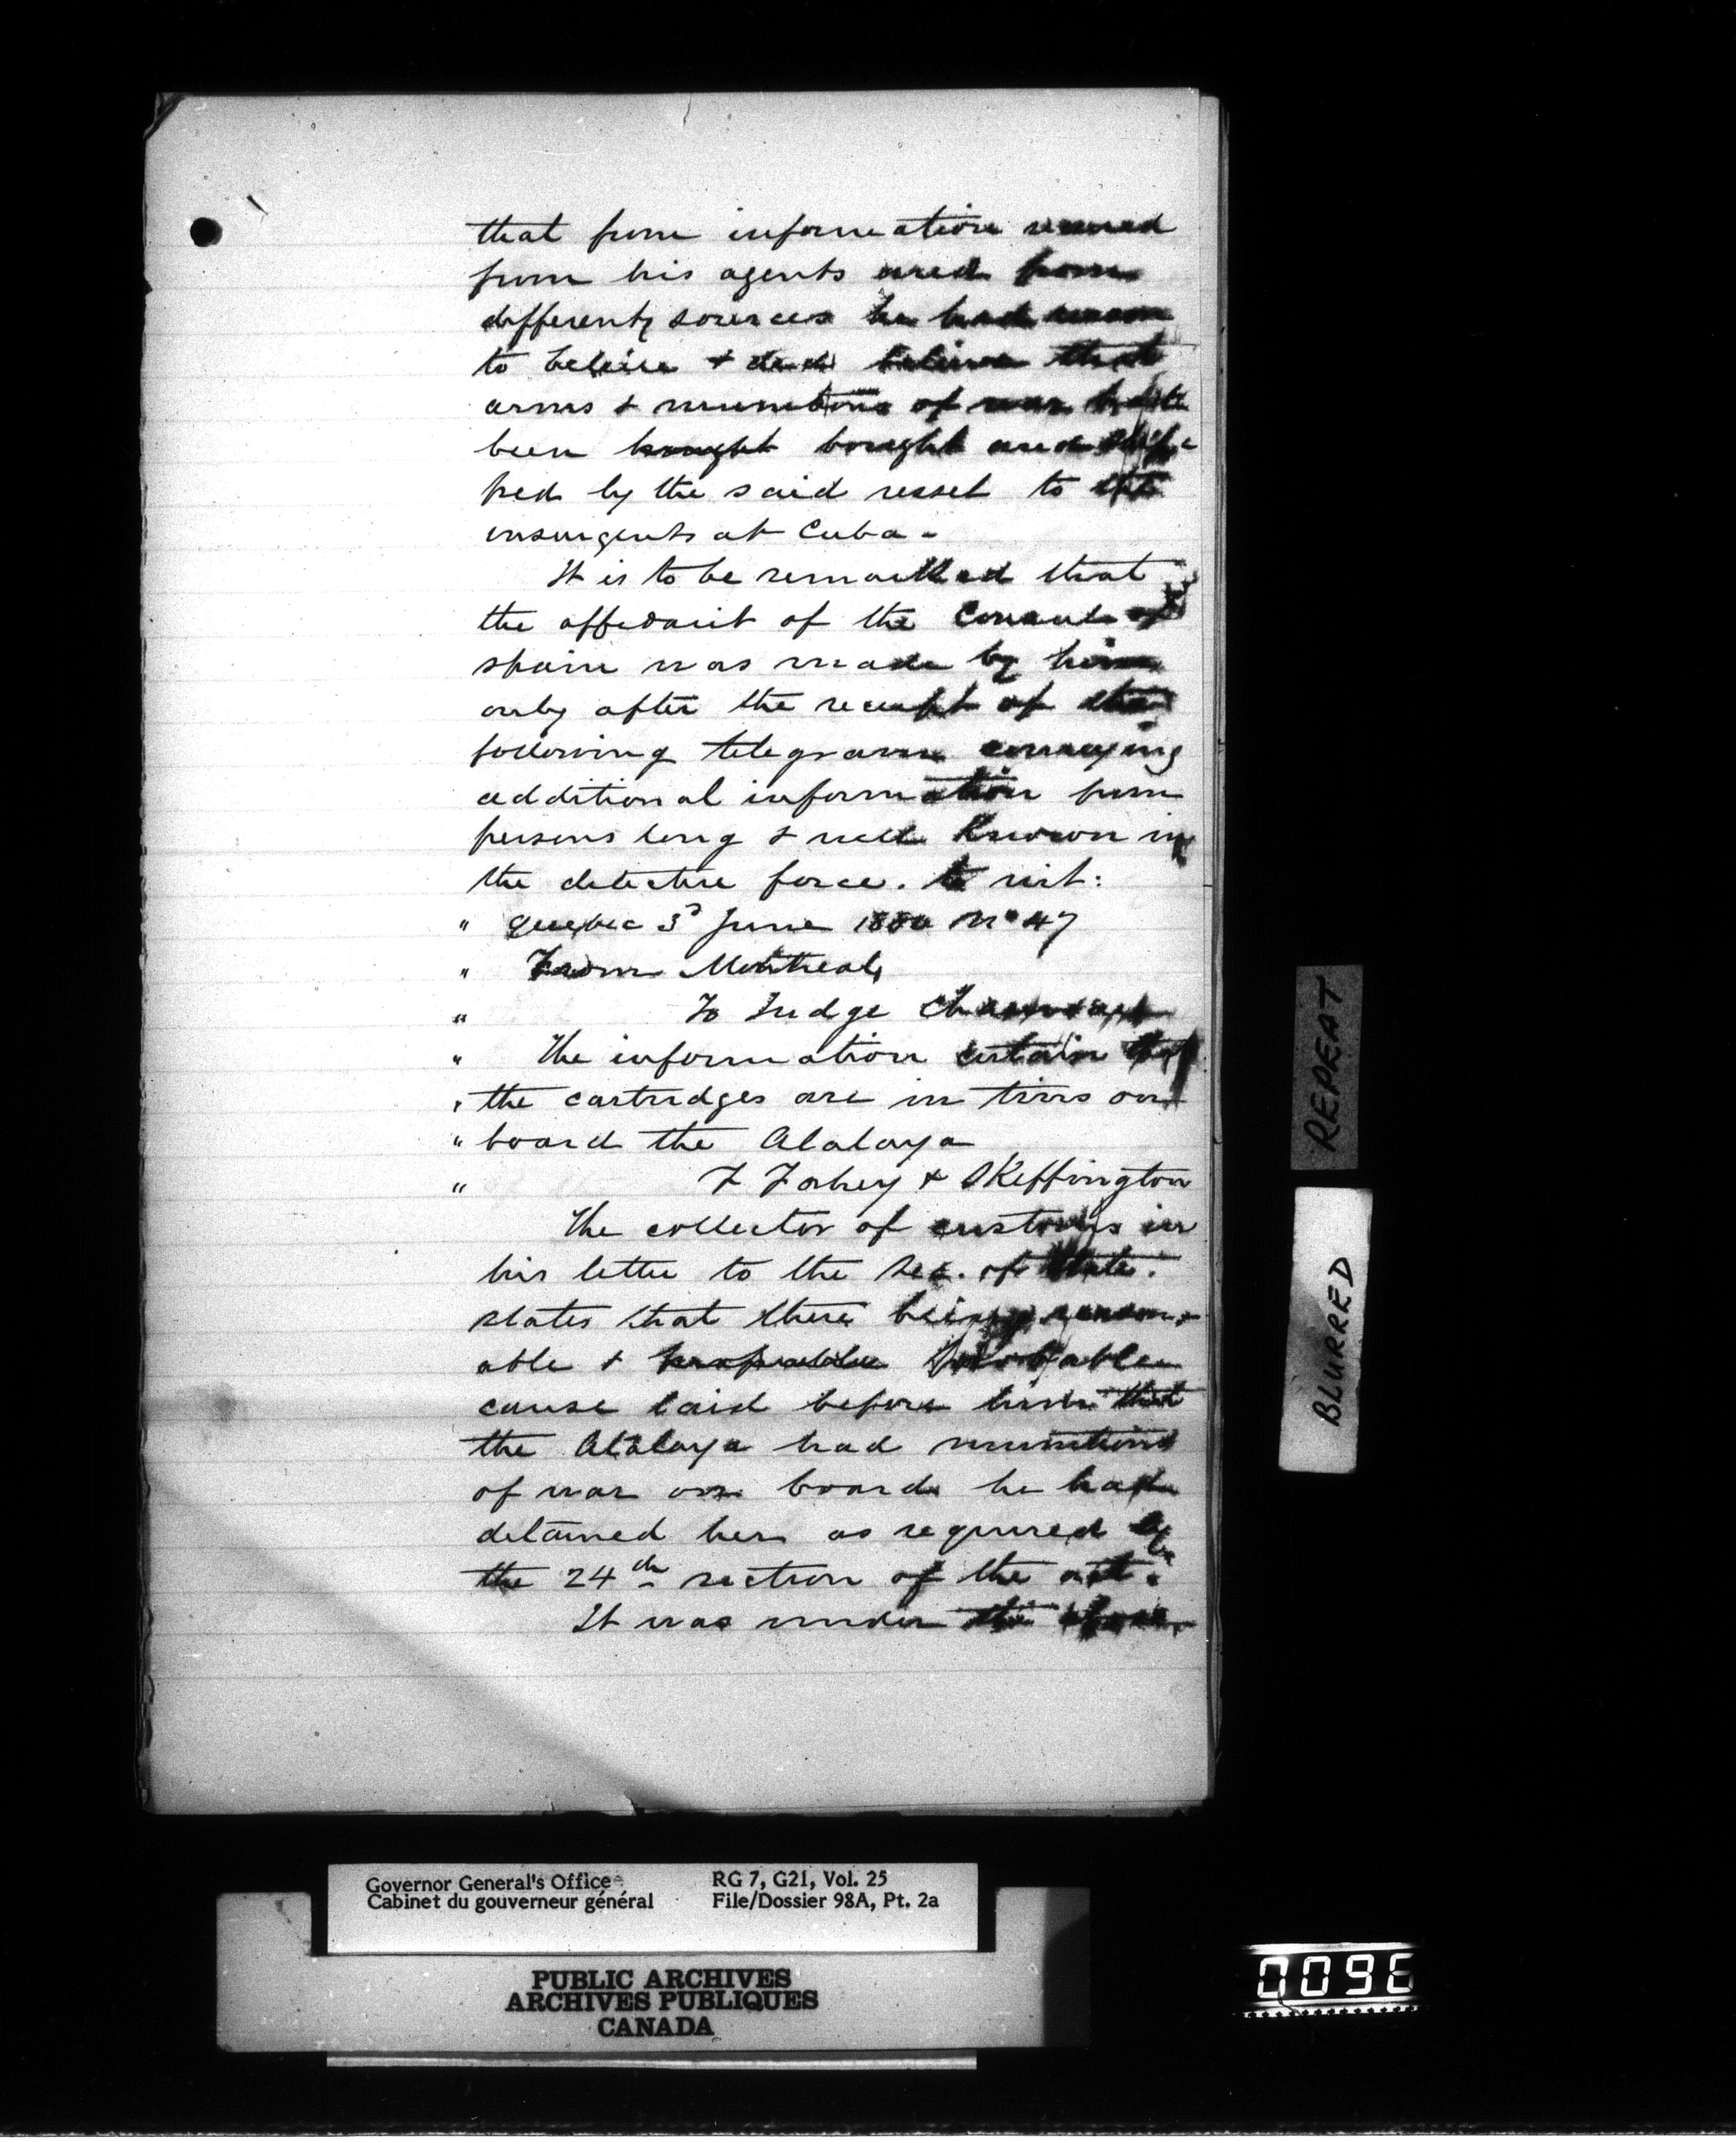 that from information received
from his agents and from
different sources he had reason
to beleive & did believe that
arms & munitions of war had
been bought bought and ship-
ped by the said vessel to the
insurgents at Cuba -
It is to be remarked that
the affidavit of the Consul of
spain was made by him
only after the receipt of the
following telegram conveying
additional information from
persons long & well known in
the detective force. to wit:
" Quebec 3d June 1880 No 47
" From Montreal
" To Judge Chauveau
" The information certain that
" the cartridges are in tins on
" board the Atalaya
" F Fahey & Skeffington
The collector of customs in
his letter to the Sec. of State.
states that there being reason-
able & probable
cause laid before him that
the Atalaya had munitions
of war on board he had
detained her as required by
the 24th section of the act.
It was under the above
REPEAT
BLURRED
Governor General's Office RG 7, G21, Vol. 25
Cabinet du gouverneur général File/Dossier 98A, Pt. 2a
PUBLIC ARCHIVES
ARCHIVES PUBLIQUES
CANADA